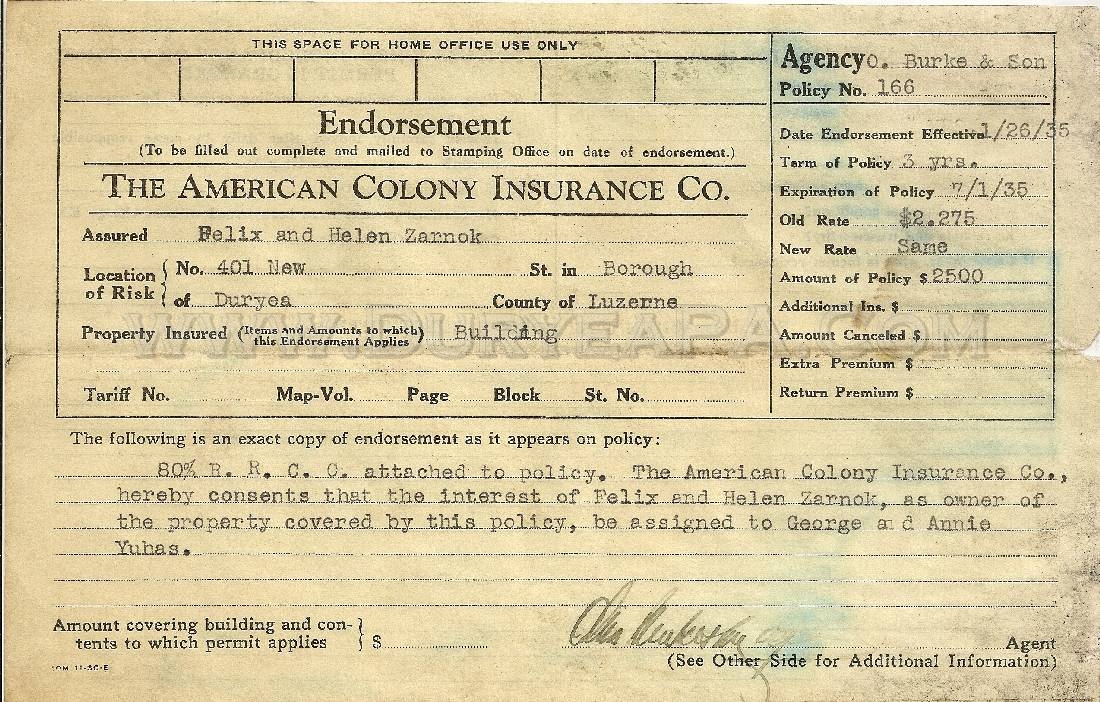 THIS SPACE FOR HOME OFFICE USE ONLY
Agency O. Burke & Son
Policy No. 166
Endorsement
(To be filled out complete and mailed to Stamping Office on date of endorsement.)
THE AMERICAN COLONY INSURANCE CO.
Date Endorsement Effective 1/26/35
Term of Policy 3 yrs.
Expiration of Policy 7/1/35
Old Rate $2.275
New Rate Same
Amount of Policy $ 2500
Additional Ins. $
Amount Canceled $
Extra Premium $
Return Premium $
Assured Felix and Helen Zarnok
Location of Risk { No. 401 New St. in Borough
of Duryea County of Luzerne
Property Insured (Items and Amounts to which this Endorsement Applies) Building
WWW.DURYEAPA.COM
Tariff No. Map-Vol. Page Block St. No.
The following is an exact copy of endorsement as it appears on policy:
80% R. R. C. C. attached to policy. The American Colony Insurance Co.,
hereby consents that the interest of Felix and Helen Zarnok, as owner of
the property covered by this policy, be assigned to George and Annie
Yuhas.
Amount covering building and con-
tents to which permit applies } $
Agent
(See Other Side for Additional Information)